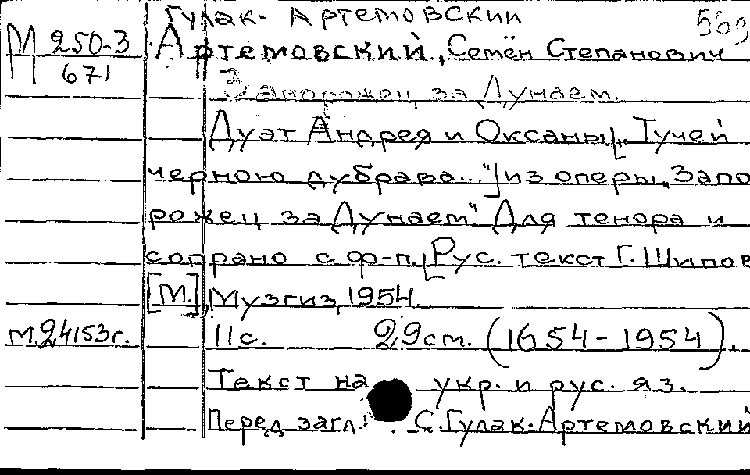 Гулак- Артемовский 569
М 250-3
671
Артемовский, Семён Степанович
Запорожец за Дунаем.
Дуэт Андрея и Оксаны ["Тучей
черною дубрава..."] из оперы "Запо
рожец за Дунаем". Для тенора и
сопрано с ф-п. [Рус. текст Г. Шипов
[М.], Музгиз, 1954.
М.24153г. 11с. 29 см. (1654-1954).
Текст на укр. и рус. яз.
Перед загл.: С. Гулак-Артемовский